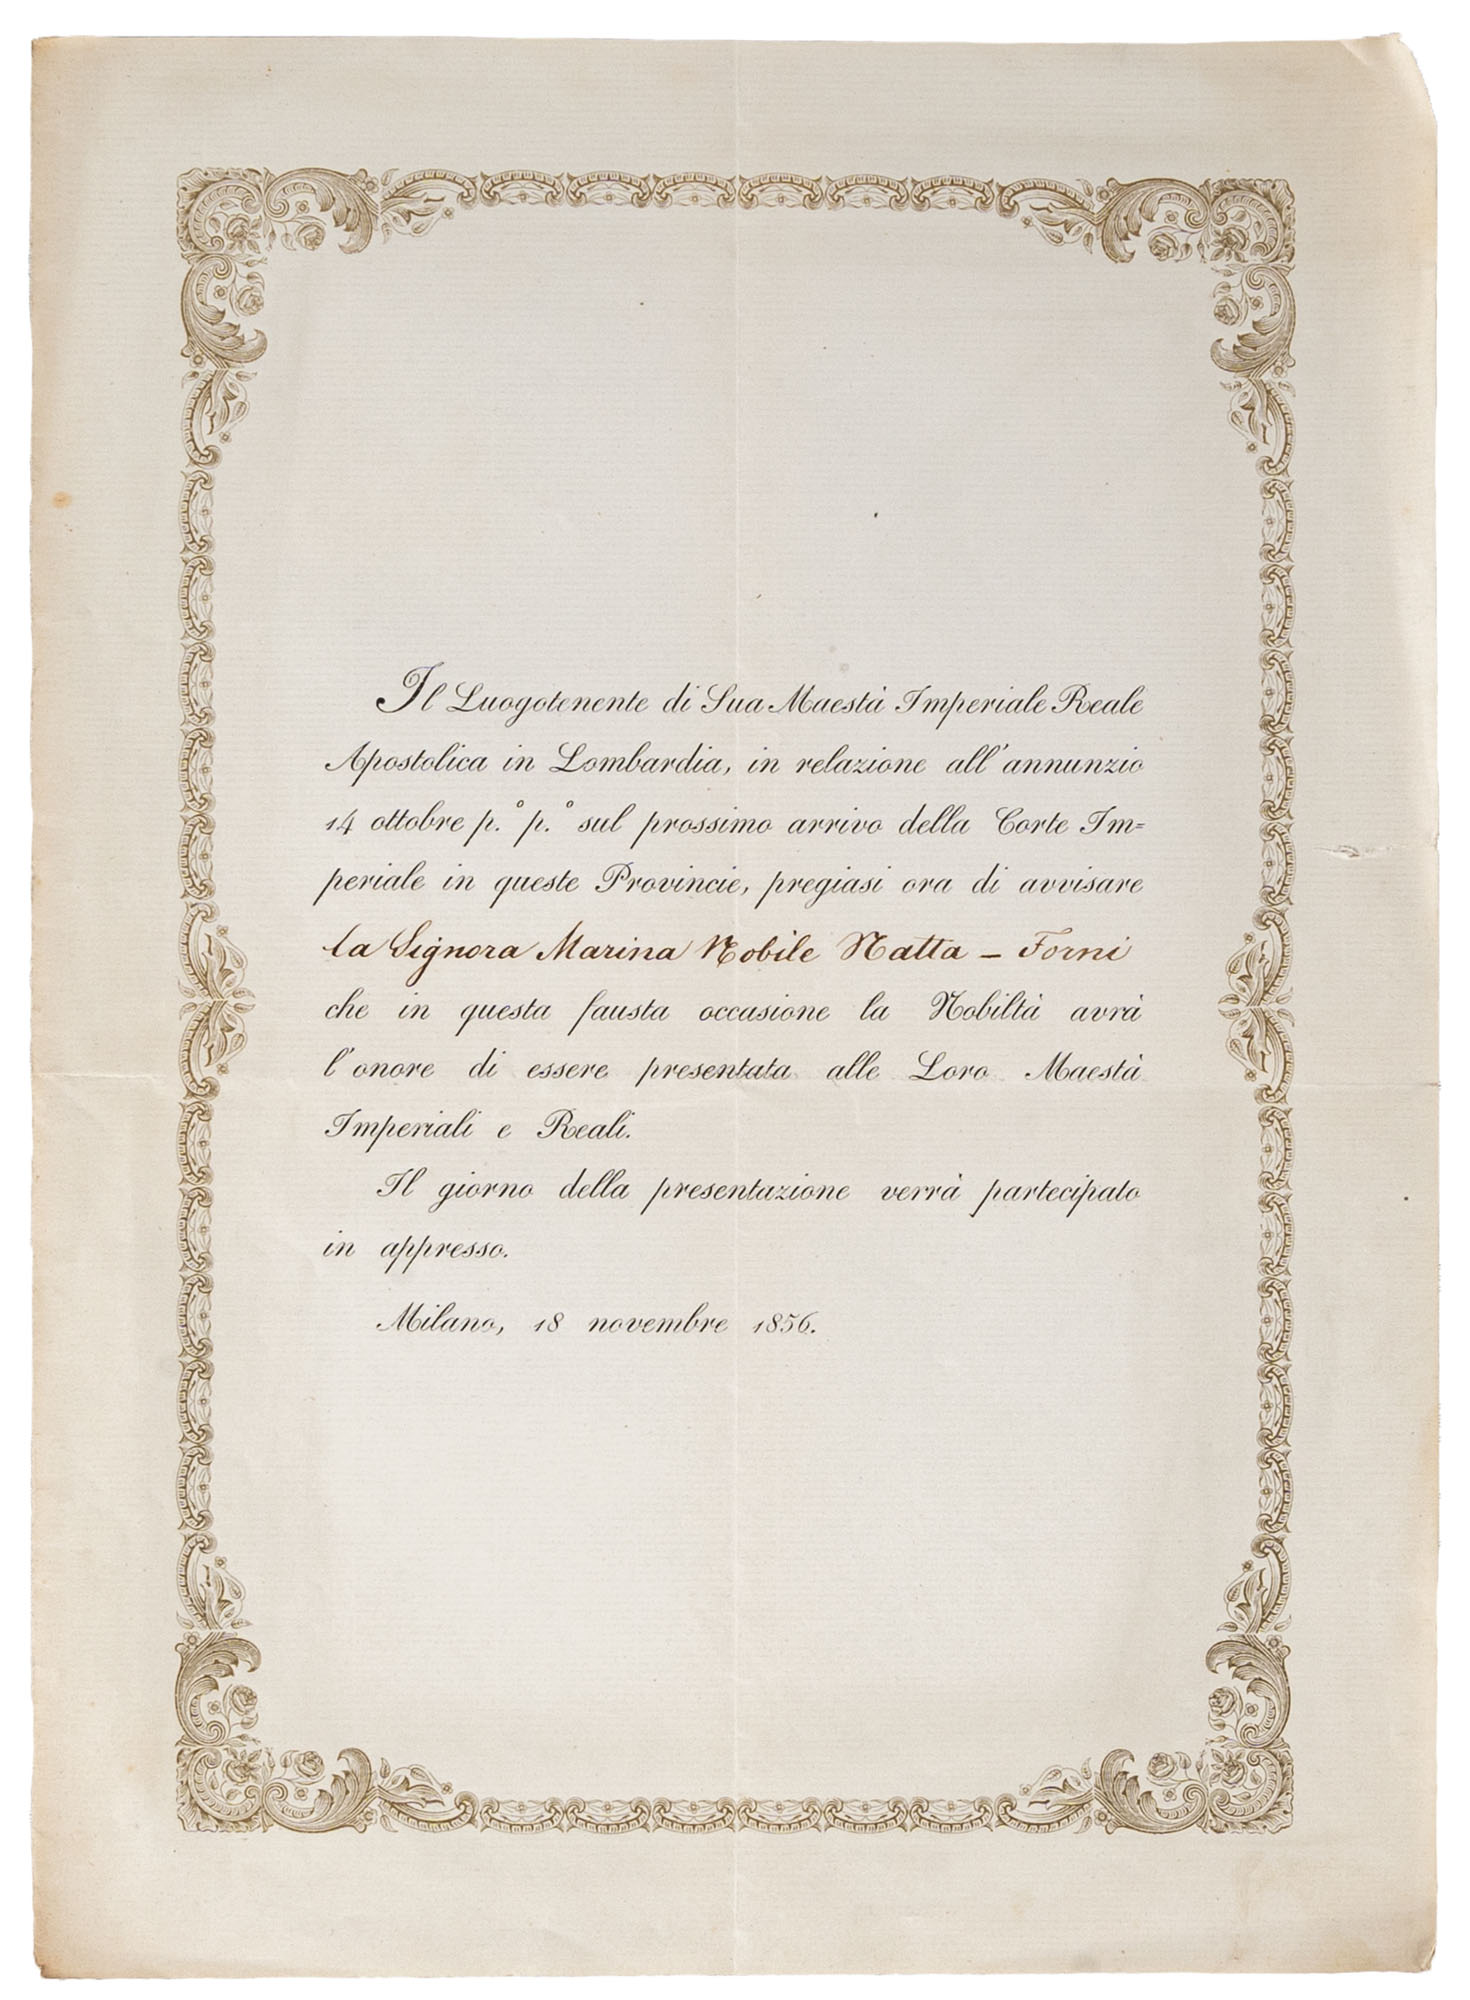 Il Luogotenente di Sua Maestà Imperiale Reale
Apostolica in Lombardia, in relazione all'annunzio
14 ottobre p.° p.° sul prossimo arrivo della Corte Im=
periale in queste Provincie, pregiasi ora di avvisare
la Signora Marina Nobile Natta - Forni
che in questa fausta occasione la Nobiltà avrà
l'onore di essere presentata alle Loro Maestà
Imperiali e Reali.
Il giorno della presentazione verrà partecipato
in appresso.
Milano, 18 novembre 1856.